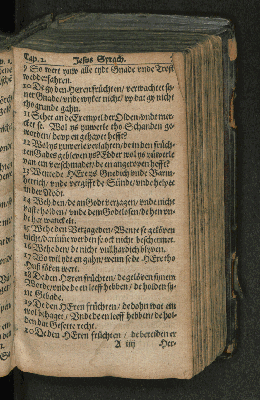 Cap. 2. Jesus Syrach.
9 So wert yuw alle tydt Gnade vnde Trost
wedderfahren.
10 De gy den HEren früchten/ verwachtet sy-
ner Gnade/ vnde wyket nicht/ vp dat gy nicht
tho grunde gahn.
11 Sehet an de Exempel der Olden/ vnde mer-
cket se. Wol ys yuwerle tho Schanden ge-
worden/ de vp en gehapet hefft?
12 Wol ys yuwerle vorlaten/ de in den früch-
ten Gades gebleuen ys? Edder wol ys yuwerle
van em vorschmehet/ de en angeropen hefft?
13 Wente de HEre ys Gnedich vnde Barm-
hertich/ vnde vergifft de Sünde/ vnde helpet
in der Nodt.
14 Weh den/ de an Gade vorzagen/ vnde nicht
vaste holden/ vnde dem Godtlosen/ de hen vn-
de her wancket.
15 Wehe den Vorzageden/ Wente se gelöuen
nicht/ darümme werden se ock nicht beschermet.
16 Wehe den/ de nicht vulhardich blyuen.
17 Wo wil ydt en gahn/ wenn se de HEre tho
Huß söken wert.
18 De den HEren früchten/ de gelöuen synem
Worde/ vnde de en leeff hebben/ de holden sy-
ne Gebade.
19 De den HEren früchten/ de dohn wat em
wol behaget/ Vnde de en leeff hebben/ de hol-
den dat Gesette recht.
20 De den HEren früchten/ de bereiden er
A iiij Her-